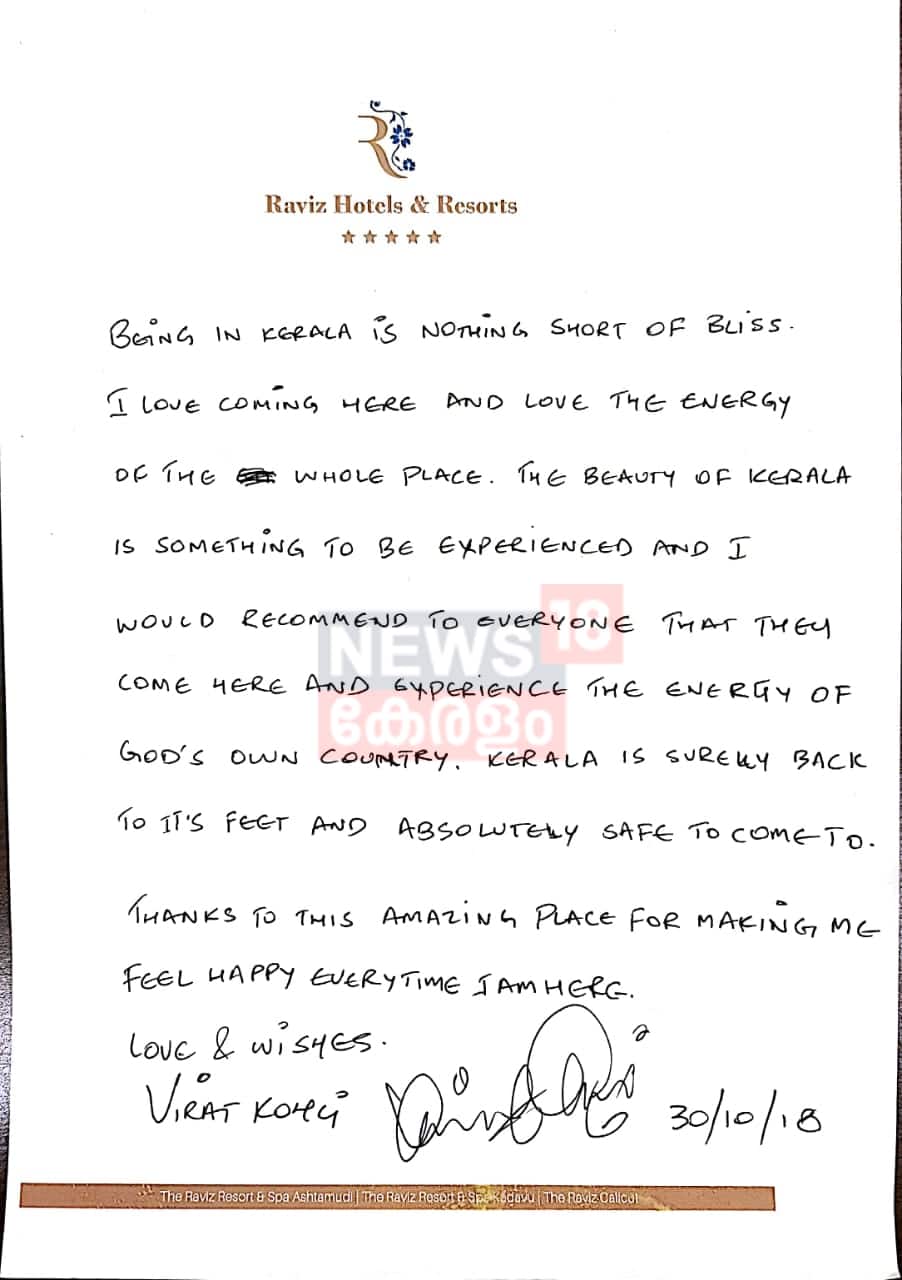 Raviz Hotels & Resorts
BEING IN KERALA IS NOTHING SHORT OF BLISS.
I LOVE COMING HERE AND LOVE THE ENERGY
OF THE WHOLE PLACE. THE BEAUTY OF KERALA
IS SOMETHING TO BE EXPERIENCED AND I
WOULD RECOMMEND TO EVERYONE THAT THEY
NEWS18
COME HERE AND EXPERIENCE THE ENERGY OF
കേരളം
GOD'S OWN COUNTRY. KERALA IS SURELY BACK
TO IT'S FEET AND ABSOLUTELY SAFE TO COME TO.
THANKS TO THIS AMAZING PLACE FOR MAKING ME
FEEL HAPPY EVERYTIME I AM HERE.
LOVE & WISHES.
VIRAT KOHLI 30/10/18
The Raviz Resort & Spa Ashtamudi | The Raviz Resort & Spa Kadavu | The Raviz Calicut